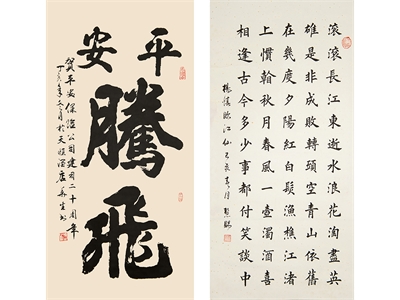 平安
騰飛
賀平安保險公司建司二十周年
滾滾長江東逝水浪花淘盡英
雄是非成敗轉頭空青山依舊
在幾度夕陽紅白髮漁樵江渚
上慣看秋月春風一壺濁酒喜
相逢古今多少事都付笑談中
楊慎臨江仙